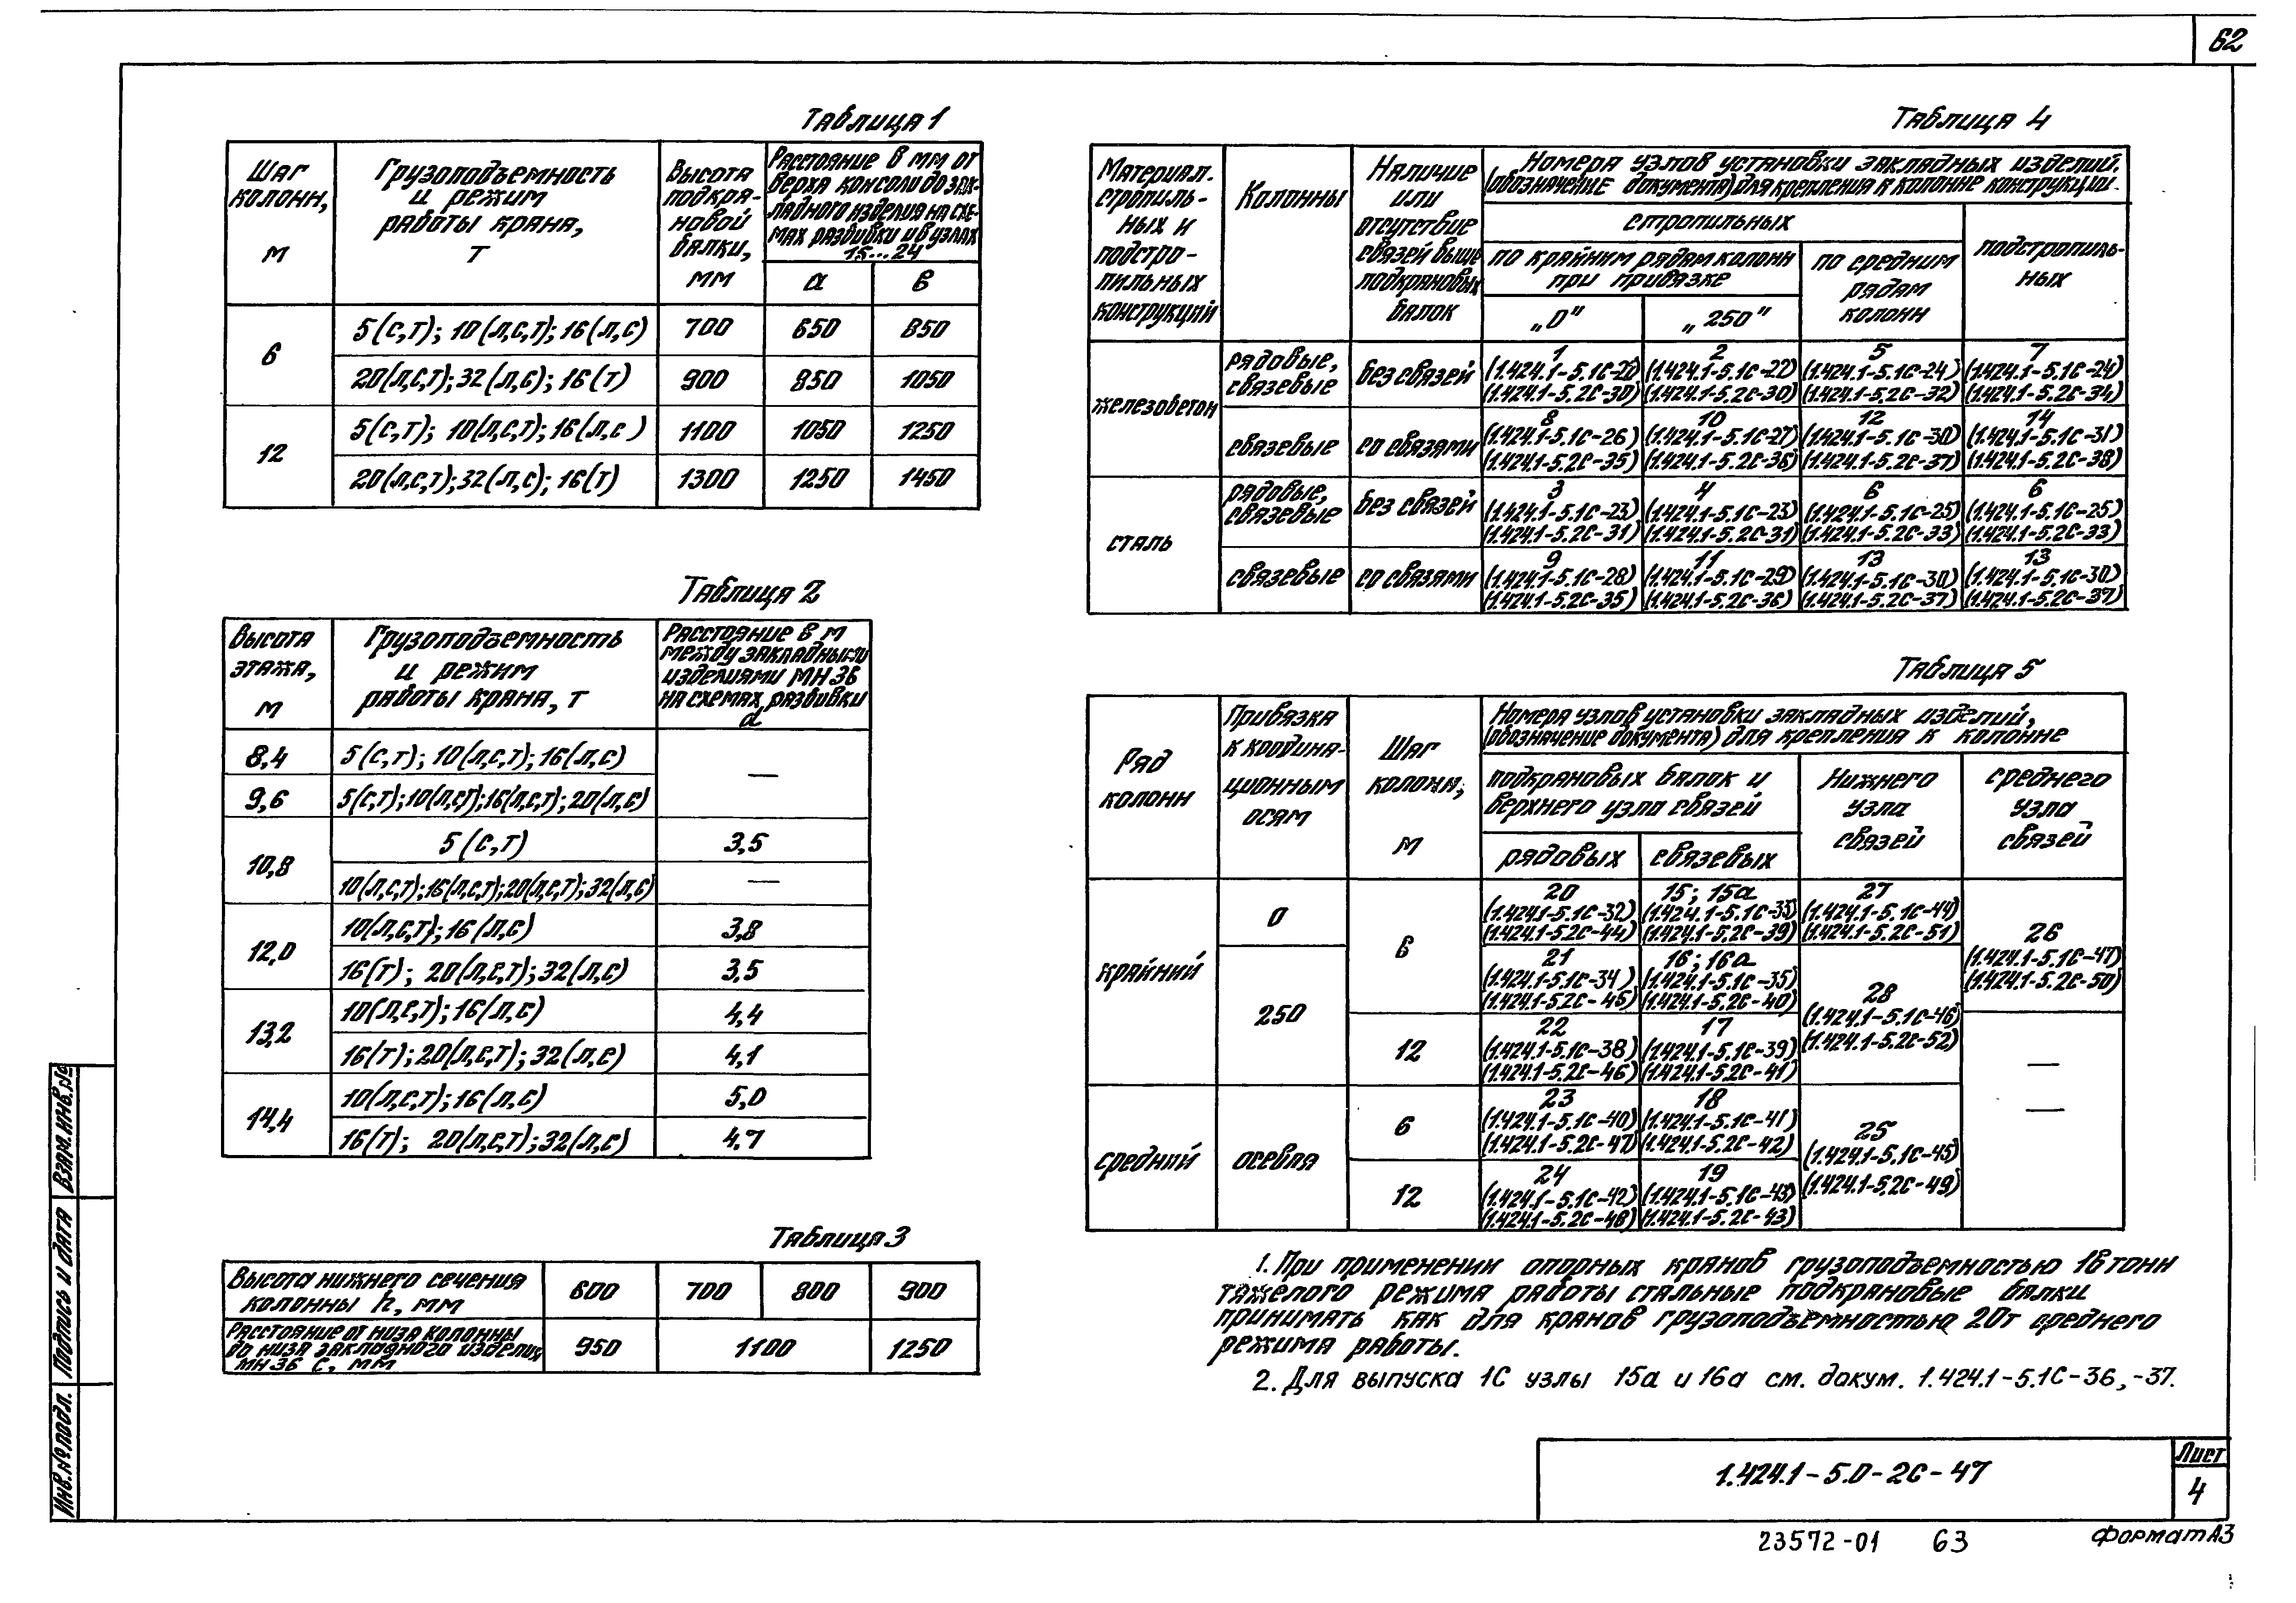 62
Таблица 1
Шаг колонн, м
Грузоподъемность и режим работы крана, т
Высота подкрановой балки, мм
Расстояние в мм от
верха консоли до зак-
ладного изделия на схе-
мах разбивки и в узлах
15...24
а
в
6
5(с,т); 10(л,с,т); 16(л,с)
700
650
850
20(л,с,т); 32(л,с); 16(т)
900
850
1050
12
5(с,т); 10(л,с,т); 16(л,с)
1100
1050
1250
20(л,с,т); 32(л,с); 16(т)
1300
1250
1450
Таблица 2
Высота
этажа,
м
Грузоподъемность
и режим
работы крана, т
Расстояние в м
между закладными
изделиями МН36
на схемах разбивки
d
8,4
5(с,т); 10(л,с,т); 16(л,с)
—
9,6
5(с,т); 10(л,с,т); 16(л,с,т); 20(л,с)
10,8
5(с,т)
3,5
10(л,с,т); 16(л,с,т); 20(л,с,т); 32(л,с)
—
12,0
10(л,с,т); 16(л,с)
3,8
16(т); 20(л,с,т); 32(л,с)
3,5
13,2
10(л,с,т); 16(л,с)
4,4
16(т); 20(л,с,т); 32(л,с)
4,1
14,4
10(л,с,т); 16(л,с)
5,0
16(т); 20(л,с,т); 32(л,с)
4,7
Таблица 3
Высота нижнего сечения
колонны h, мм
600
700
800
900
Расстояние от низа колонны
до низа закладного изделия
МН36 с, мм
950
1100
1250
Таблица 4
Материал
стропиль-
ных и
подстро-
пильных
конструкций
Колонны
Наличие
или
отсутствие
связей выше
подкрановых
балок
Номера узлов установки закладных изделий,
(обозначение документа) для крепления к колонне конструкций.
стропильных
подстропиль-
ных
по крайним рядам колонн
при привязке
по средним
рядам
колонн
„0"
„250"
железобетон
рядовые,
связевые
без связей
1
(1.424.1-5.1С-22)
(1.424.1-5.2С-30)
2
(1.424.1-5.1С-22)
(1.424.1-5.2С-30)
5
(1.424.1-5.1С-24)
(1.424.1-5.2С-32)
7
(1.424.1-5.1С-24)
(1.424.1-5.2С-34)
связевые
со связями
8
(1.424.1-5.1С-26)
(1.424.1-5.2С-35)
10
(1.424.1-5.1С-27)
(1.424.1-5.2С-36)
12
(1.424.1-5.1С-30)
(1.424.1-5.2С-37)
14
(1.424.1-5.1С-31)
(1.424.1-5.2С-38)
сталь
рядовые,
связевые
без связей
3
(1.424.1-5.1С-23)
(1.424.1-5.2С-31)
4
(1.424.1-5.1С-23)
(1.424.1-5.2С-31)
6
(1.424.1-5.1С-25)
(1.424.1-5.2С-33)
6
(1.424.1-5.1С-25)
(1.424.1-5.2С-33)
связевые
со связями
9
(1.424.1-5.1С-28)
(1.424.1-5.2С-35)
11
(1.424.1-5.1С-29)
(1.424.1-5.2С-36)
13
(1.424.1-5.1С-30)
(1.424.1-5.2С-37)
13
(1.424.1-5.1С-30)
(1.424.1-5.2С-37)
Таблица 5
Ряд
колонн
Привязка
к коодина-
ционным
осям
Шаг
колонн,
м
Номера узлов установки закладных изделий,
(обозначение документа) для крепления к колонне
подкрановых балок и
верхнего узла связей
Нижнего
узла
связей
среднего
узла
связей
рядовых
связевых
крайний
0
6
20
(1.424.1-5.1С-32)
(1.424.1-5.2С-44)
15; 15а
(1.424.1-5.1С-33)
(1.424.1-5.2С-39)
27
(1.424.1-5.1С-44)
(1.424.1-5.2С-51)
26
(1.424.1-5.1С-47)
(1.424.1-5.2С-50)
250
21
(1.424.1-5.1С-34)
(1.424.1-5.2С-45)
16; 16а
(1.424.1-5.1С-35)
(1.424.1-5.2С-40)
28
(1.424.1-5.1С-46)
(1.424.1-5.2С-52)
12
22
(1.424.1-5.1С-38)
(1.424.1-5.2С-46)
17
(1.424.1-5.1С-39)
(1.424.1-5.2С-41)
—
средний
осевая
6
23
(1.424.1-5.1С-40)
(1.424.1-5.2С-47)
18
(1.424.1-5.1С-41)
(1.424.1-5.2С-42)
25
(1.424.1-5.1С-45)
(1.424.1-5.2С-49)
—
12
24
(1.424.1-5.1С-42)
(1.424.1-5.2С-48)
19
(1.424.1-5.1С-43)
(1.424.1-5.2С-43)
1. При применении опорных кранов грузоподъемностью 16 тонн
тяжелого режима работы стальные подкрановые балки
принимать как для кранов грузоподъемностью 20т среднего
режима работы.
2. Для выпуска 1С узлы 15а и 16а см. докум. 1.424.1-5.1С-36,-37.
1.424.1-5.0-2С-47
Лист
4
23572-01 63
Формат А3
Взам.инв.№
Подпись и дата
Инв.№ подл.